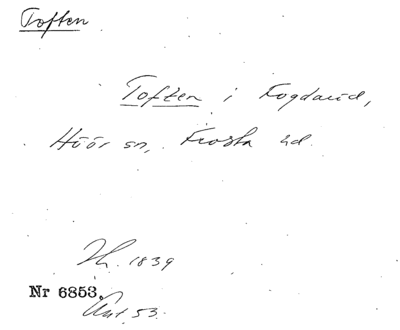 Toften
Toften i Fogdaröd,
Höör sn, Frosta hd.
Th. 1839
Nr 6853.
Ant 53.